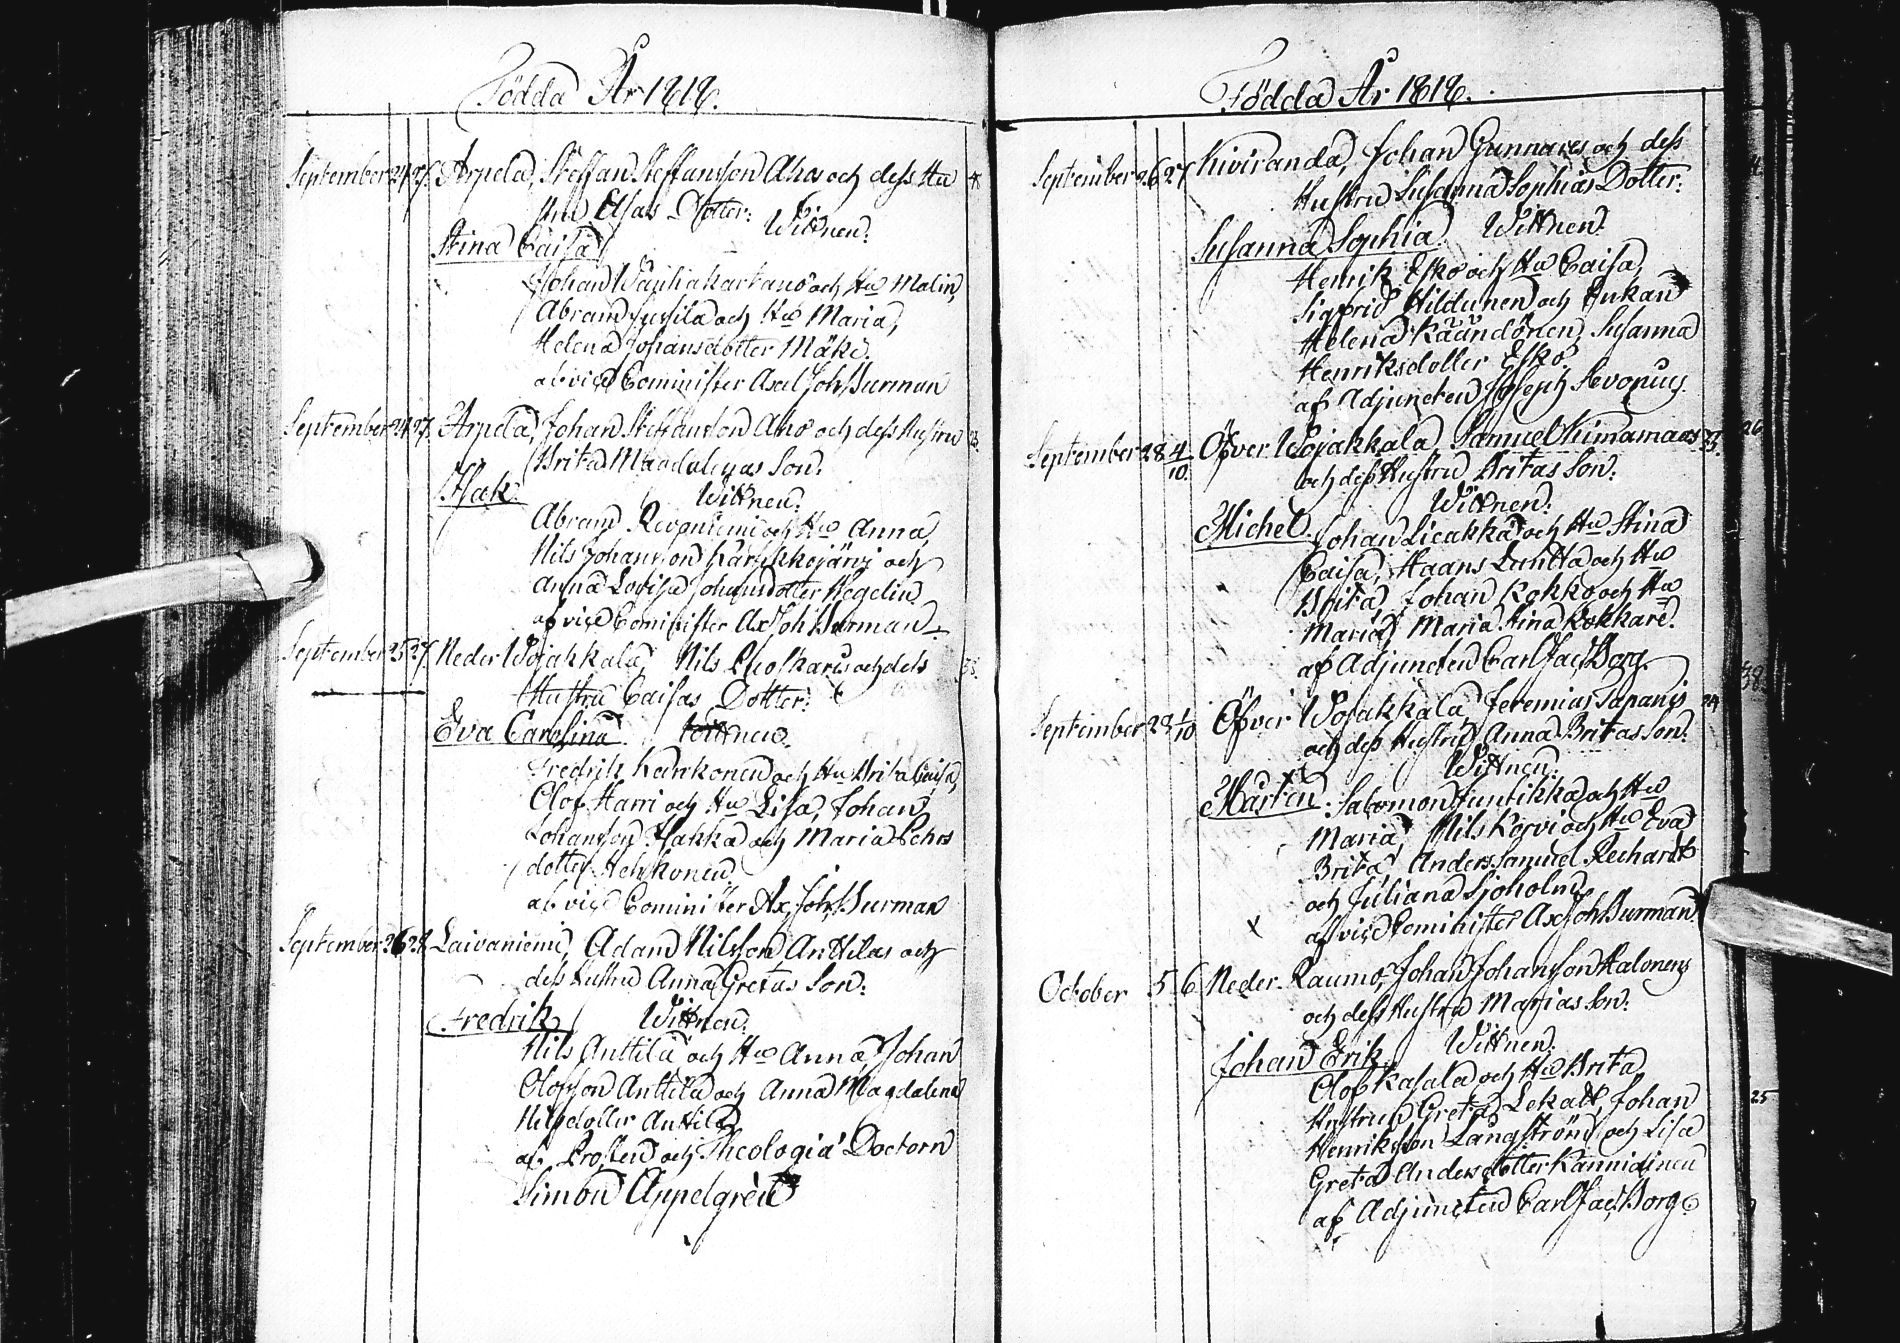 Födda År 1818.
September 24 27. Arpela, Steffan Steffansson Aho och dess Hu
stru Elsas Dotter:
Wittnen:
Stina Caisa
Johan Wanhakartano och Hu Malin,
Abram Jusila och Hu Maria,
Helena Johansdotter Mäki.
af vice Cominister Axel Joh Burman
September 24 27. Arpela, Johan Steffansson Aho och dess Hustru
Brita Magdalenas Son:
Isak
Wittnen:
Abram Reponiemi och Hu Anna,
Nils Johansson Karikkojärvi och
Anna Lovisa Johansdotter Hegelin
af vice Cominister Ax Joh Burman
September 25 27. Neder Wojakkala, Nils och dess
Hustru Caisas Dotter:
Eva Carolina Wittnen.
Fredrik och Hu Brita Caisa,
Olof Harri och Hu Lisa, Johan
Johansson och Maria Pehrs
dotter
af vice Cominister Ax Joh Burman
September 26 28. Laivaniemi, Adam Nilsson Anttilas och
dess Hustru Anna Gretas Son:
Fredrik Wittnen:
Nils Anttila och Hu Anna, Johan
Olofsson Anttila och Anna Magdalena
Nilsdotter Anttila
af Prosten och Theologiæ Doctorn
Simon Appelgren
Födda År 1818.
September 26 27 Kiviranda, Johan Gunnares och dess
Hustru Susanna Sophias Dotter:
Susanna Sophia. Wittnen:
Henrik Esko och Hu Caisa,
Sigfrid Hildunen och Enkan
Helena Susanna
Henriksdotter Esko.
af Adjuncten Joseph
September 28 4/10. Öfver Wojakkala Samuel Kimamaas
och dess Hustru Britas Son:
Wittnen:
Michel. Johan och Hu Stina
Caisa, och Hu
Brita, Johan Kokko och Hu
Maria, Maria Stina
af Adjuncten Carl Jac Borg.
September 28 1/10 Öfver Wojakkala Jeremias Tapanis 24
och dess Hustru Anna Britas Son:
Wittnen:
Mårten. Salomon Juntikka och Hu
Maria, Nils Korvi och Hu Eva
Brita, Anders Samuel Rechardt
och Juliana Sjöholm
af vice Cominister Ax Joh Burman
October 5 6 Neder Raumo, Johan Johansson Kalonens
och dess Hustru Marias Son:
Wittnen:
Johan Erik.
Olof Kasala och Hu Brita,
Hustrun Greta Johan
Henriksson Långström och Lisa
Greta Andersdotter
af Adjuncten Carl Jac Borg
25